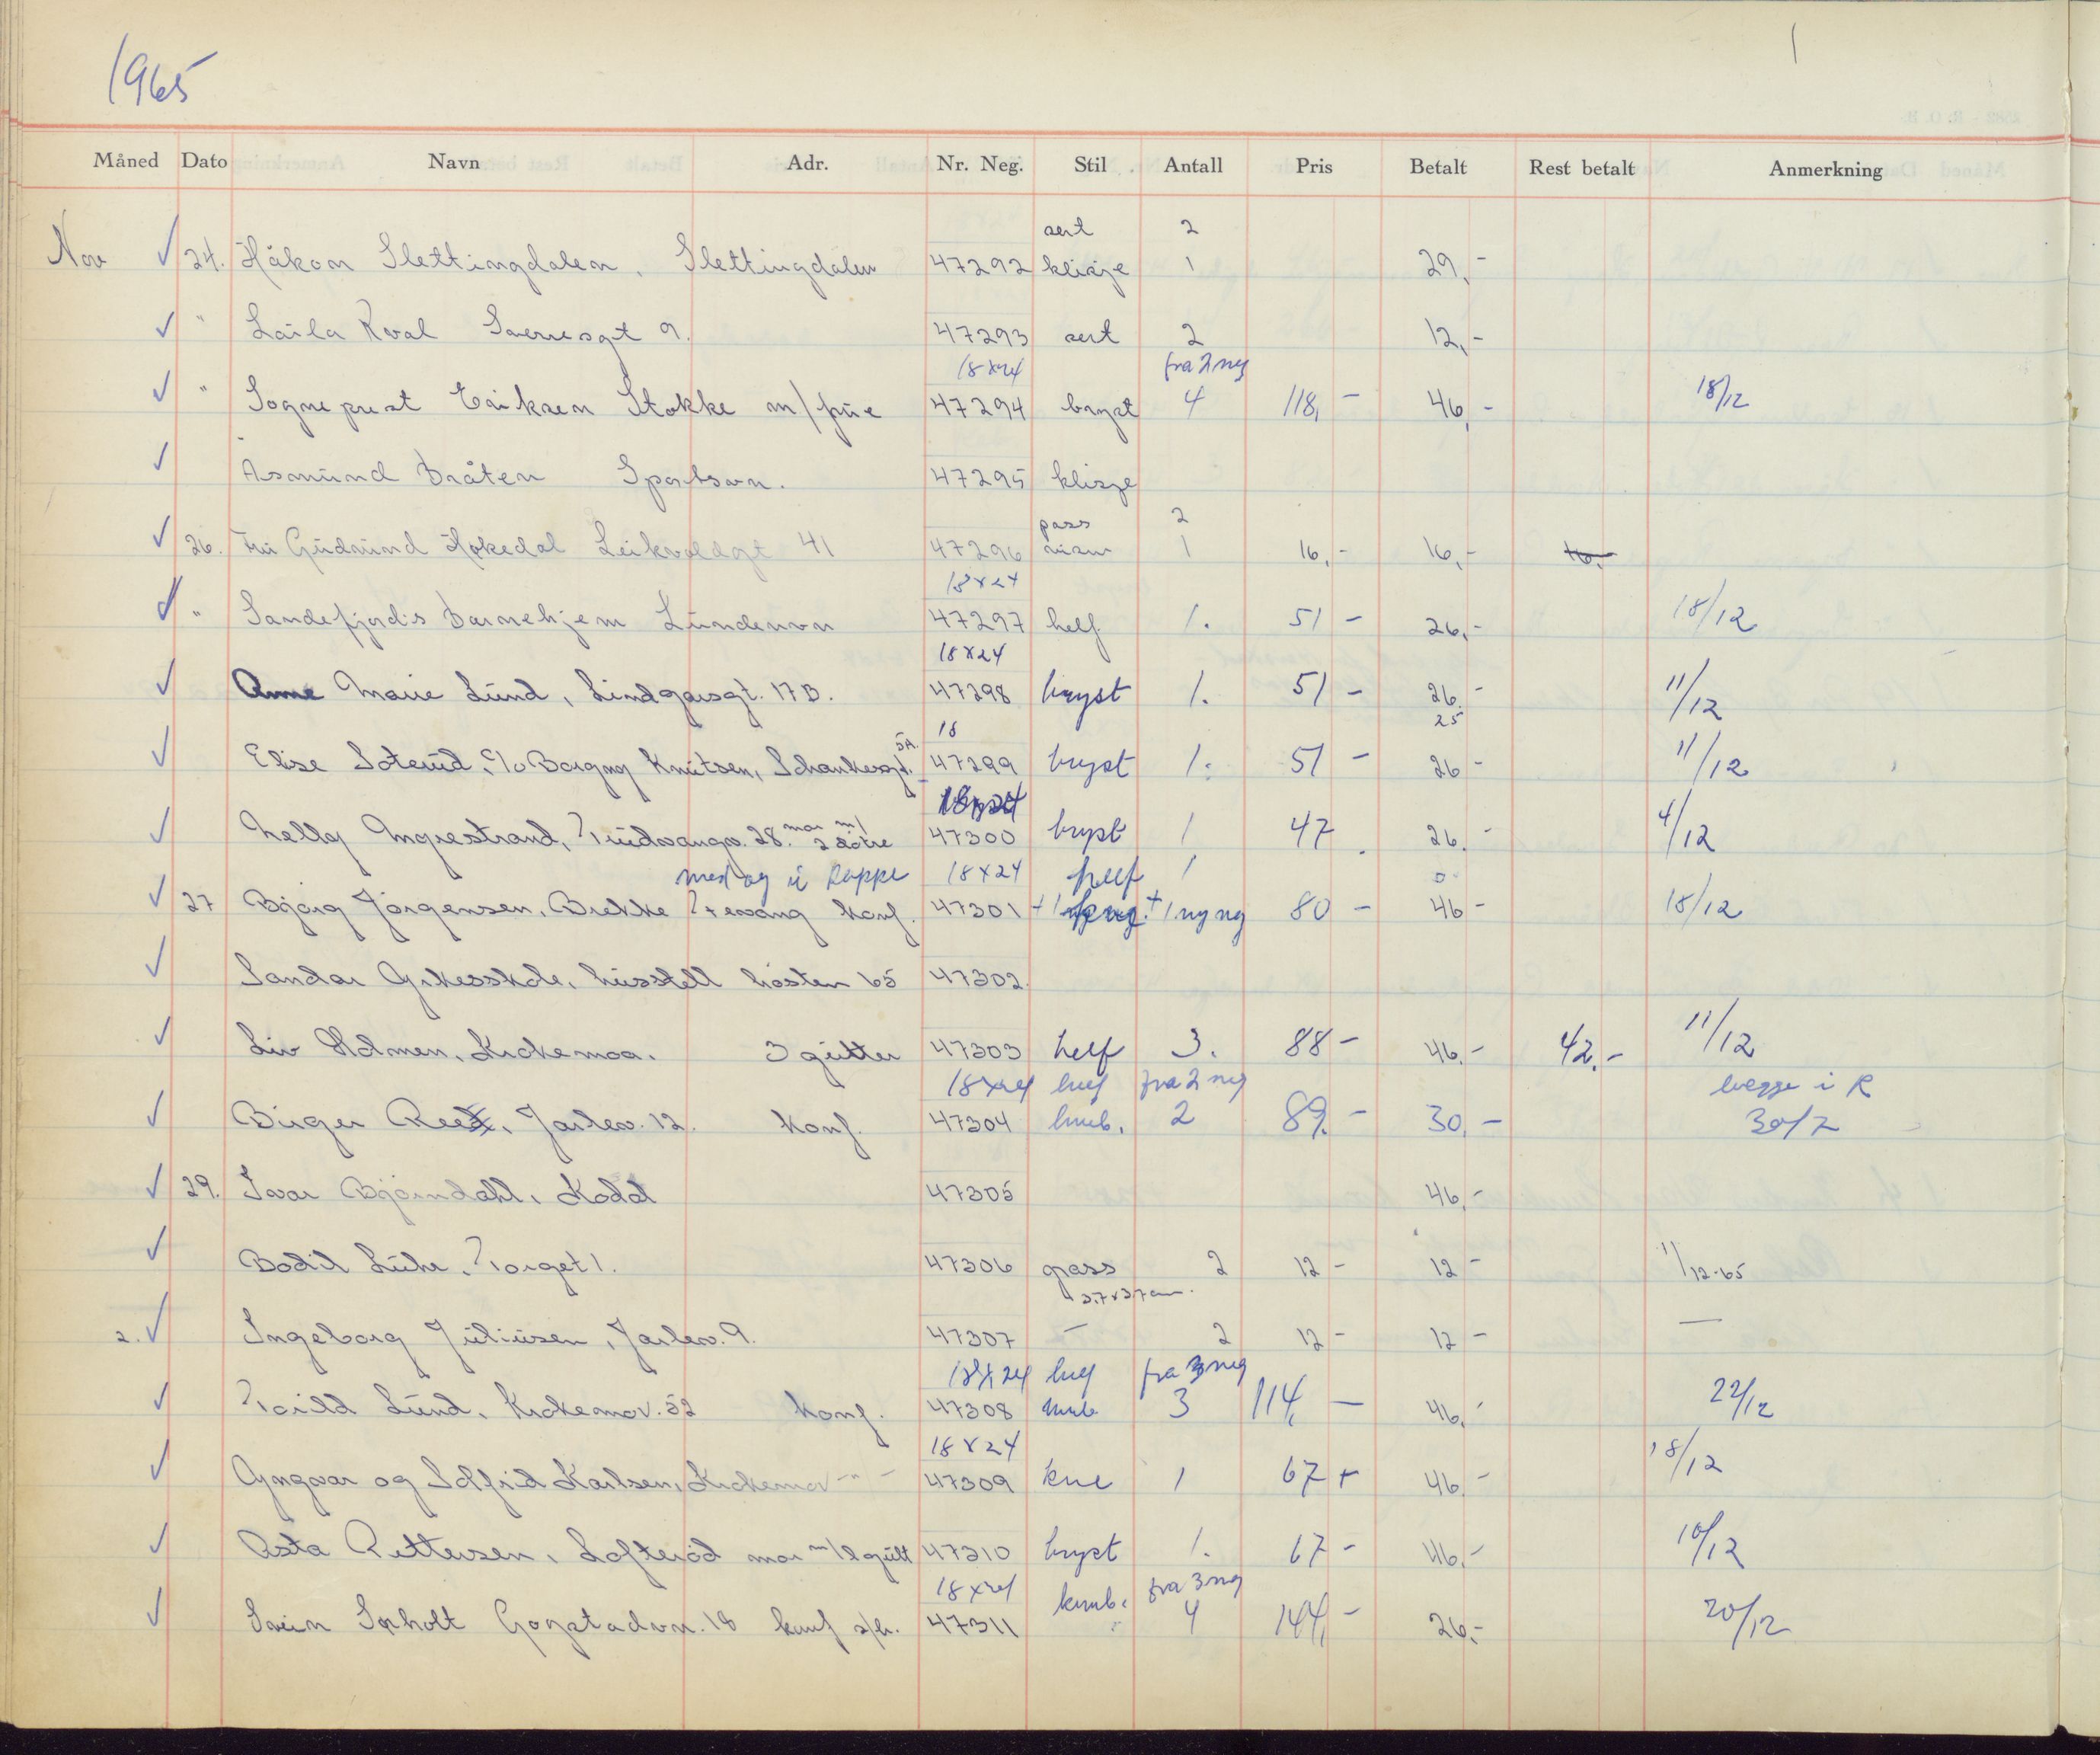 1965
1
Måned Dato Navn Adr. Nr. Neg. Stil Antall Pris Betalt Rest betalt Anmerkning
sert 2
Nov ✓ 24. Håkon Slettingdalen, Slettingdalen 47292 klisje 1 29,-
✓ " Laila Kval Sverresgt 9. 47293 sert 2 12,-
18x24 fra 2 neg
✓ " Sogneprest Eriksen Stokke m/frue 47294 bryst 4 118,- 46,- 18/12
✓ Asmund Bråten 47295 klisje
pass 2
✓ 26. Fru Gudrund Hokedal 41 47296 1 16,- 16,- 16,-
18x24
✓ " Sandefjords Barnehjem Lundenvn 47297 helf 1. 51 - 26,- 18/12
18x24
✓ Anne Marie Lund, Lindgårsgt. 17B. 47298 bryst 1. 51 - 26,- 11/12
18 25
5A.
✓ Elise Soterud, c/o Borgny Knutsen, 47299 bryst 1. 51 - 26 - 11/12
18x24
mor m/
✓ Nelly 28. 2 døtre 47300 bryst 1 47 26,- 4/12
med og i kappe 18x24 helf 1
✓ 27 Bjørg Jørgensen, Brekke Tresvang konf. 47301 + 1 + 1 ny neg 80 - 46 - 18/12
✓ Sandar Yrkesskole, husstell høsten 65 47302.
✓ Liv Holmen, Krokemoa. 3 gutter 47303 helf 3. 88 - 46,- 42,- 11/12
18x24 helf fra 2 neg begge i R
✓ Birger Ree, Jarlev. 12. konf. 47304 2 89,- 30,- 30/7
✓ 29. Ivar Bjørndahl, Kodal 47305 46,-
✓ Bodil Lühr, Torget 1. 47306 pass 2 12 - 12 - 11/12-65
37x37 cm.
2. ✓ Ingeborg Juliusen, Jarlev. 9. 47307 — 2 12 - 12 - —
18x24 helf fra 3 neg
✓ Torild Lund, Krokemov. 52 konf. 47308 3 114,- 46,- 22/12
18x24
✓ Yngvar og Solfrid Karlsen, Krokemov -"- 47309 kne 1 67 + 46,- 18/12
✓ Asta Pettersen, Lofterød mor m/2 gutt 47310 bryst 1. 67 - 46,- 10/12
18x24 knmb. fra 3 neg
✓ Svein Sørholt Gogstadvn. 18 konf s/h. 47311 4 144,- 26,- 20/12